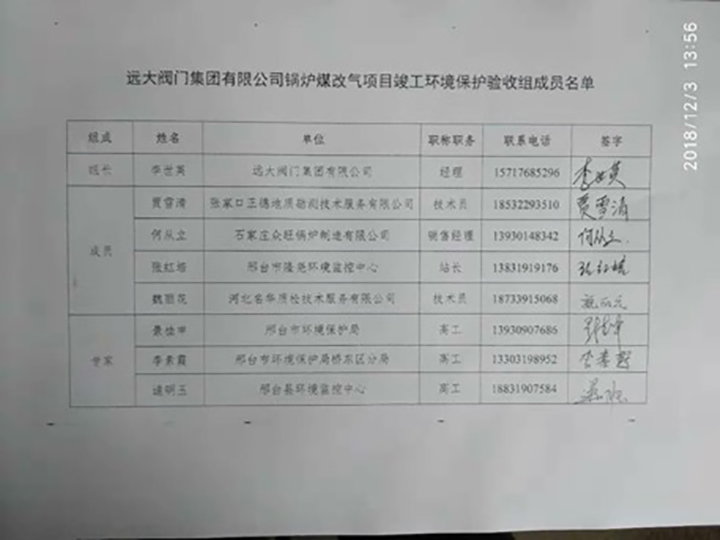 2018/12/3 13:56
远大阀门集团有限公司锅炉煤改气项目竣工环境保护验收组成员名单
组成 姓名 单位 职称职务 联系电话 签字
组长 李世英 远大阀门集团有限公司 经理 15717685296 李世英
成员
贾雪清 张家口正德地质勘测技术服务有限公司 技术员 18532293510 贾雪清
何从立 石家庄众旺锅炉制造有限公司 销售经理 13930148342 何从立
张红培 邢台市隆尧环境监控中心 站长 13831919176
魏丽花 河北名华质检技术服务有限公司 技术员 18733915068
专家
景桂申 邢台市环境保护局 高工 13930907686
李素霞 邢台市环境保护局桥东区分局 高工 13303198952
明玉 邢台县环境监控中心 高工 18831907584